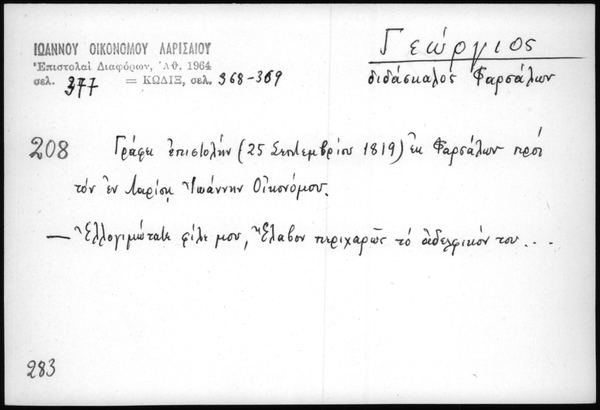 ΙΩΑΝΝΟΥ ΟΙΚΟΝΟΜΟΥ ΛΑΡΙΣΑΙΟΥ
Ἐπιστολαὶ Διαφόρων, Ἀθ. 1964
σελ. 377 = ΚΩΔΙΞ, σελ. 368-369
Γεώργιος
διδάσκαλος Φαρσάλων
208 Γράφει ἐπιστολήν (25 Σεπτεμβρίου 1819) ἐκ Φαρσάλων πρὸς
τόν ἐν Λαρίσῃ Ἰωάννην Οἰκονόμου.
— Ἐλλογιμώτατε φίλε μου, Ἔλαβον περιχαρῶς τό ἀδελφικόν του...
283